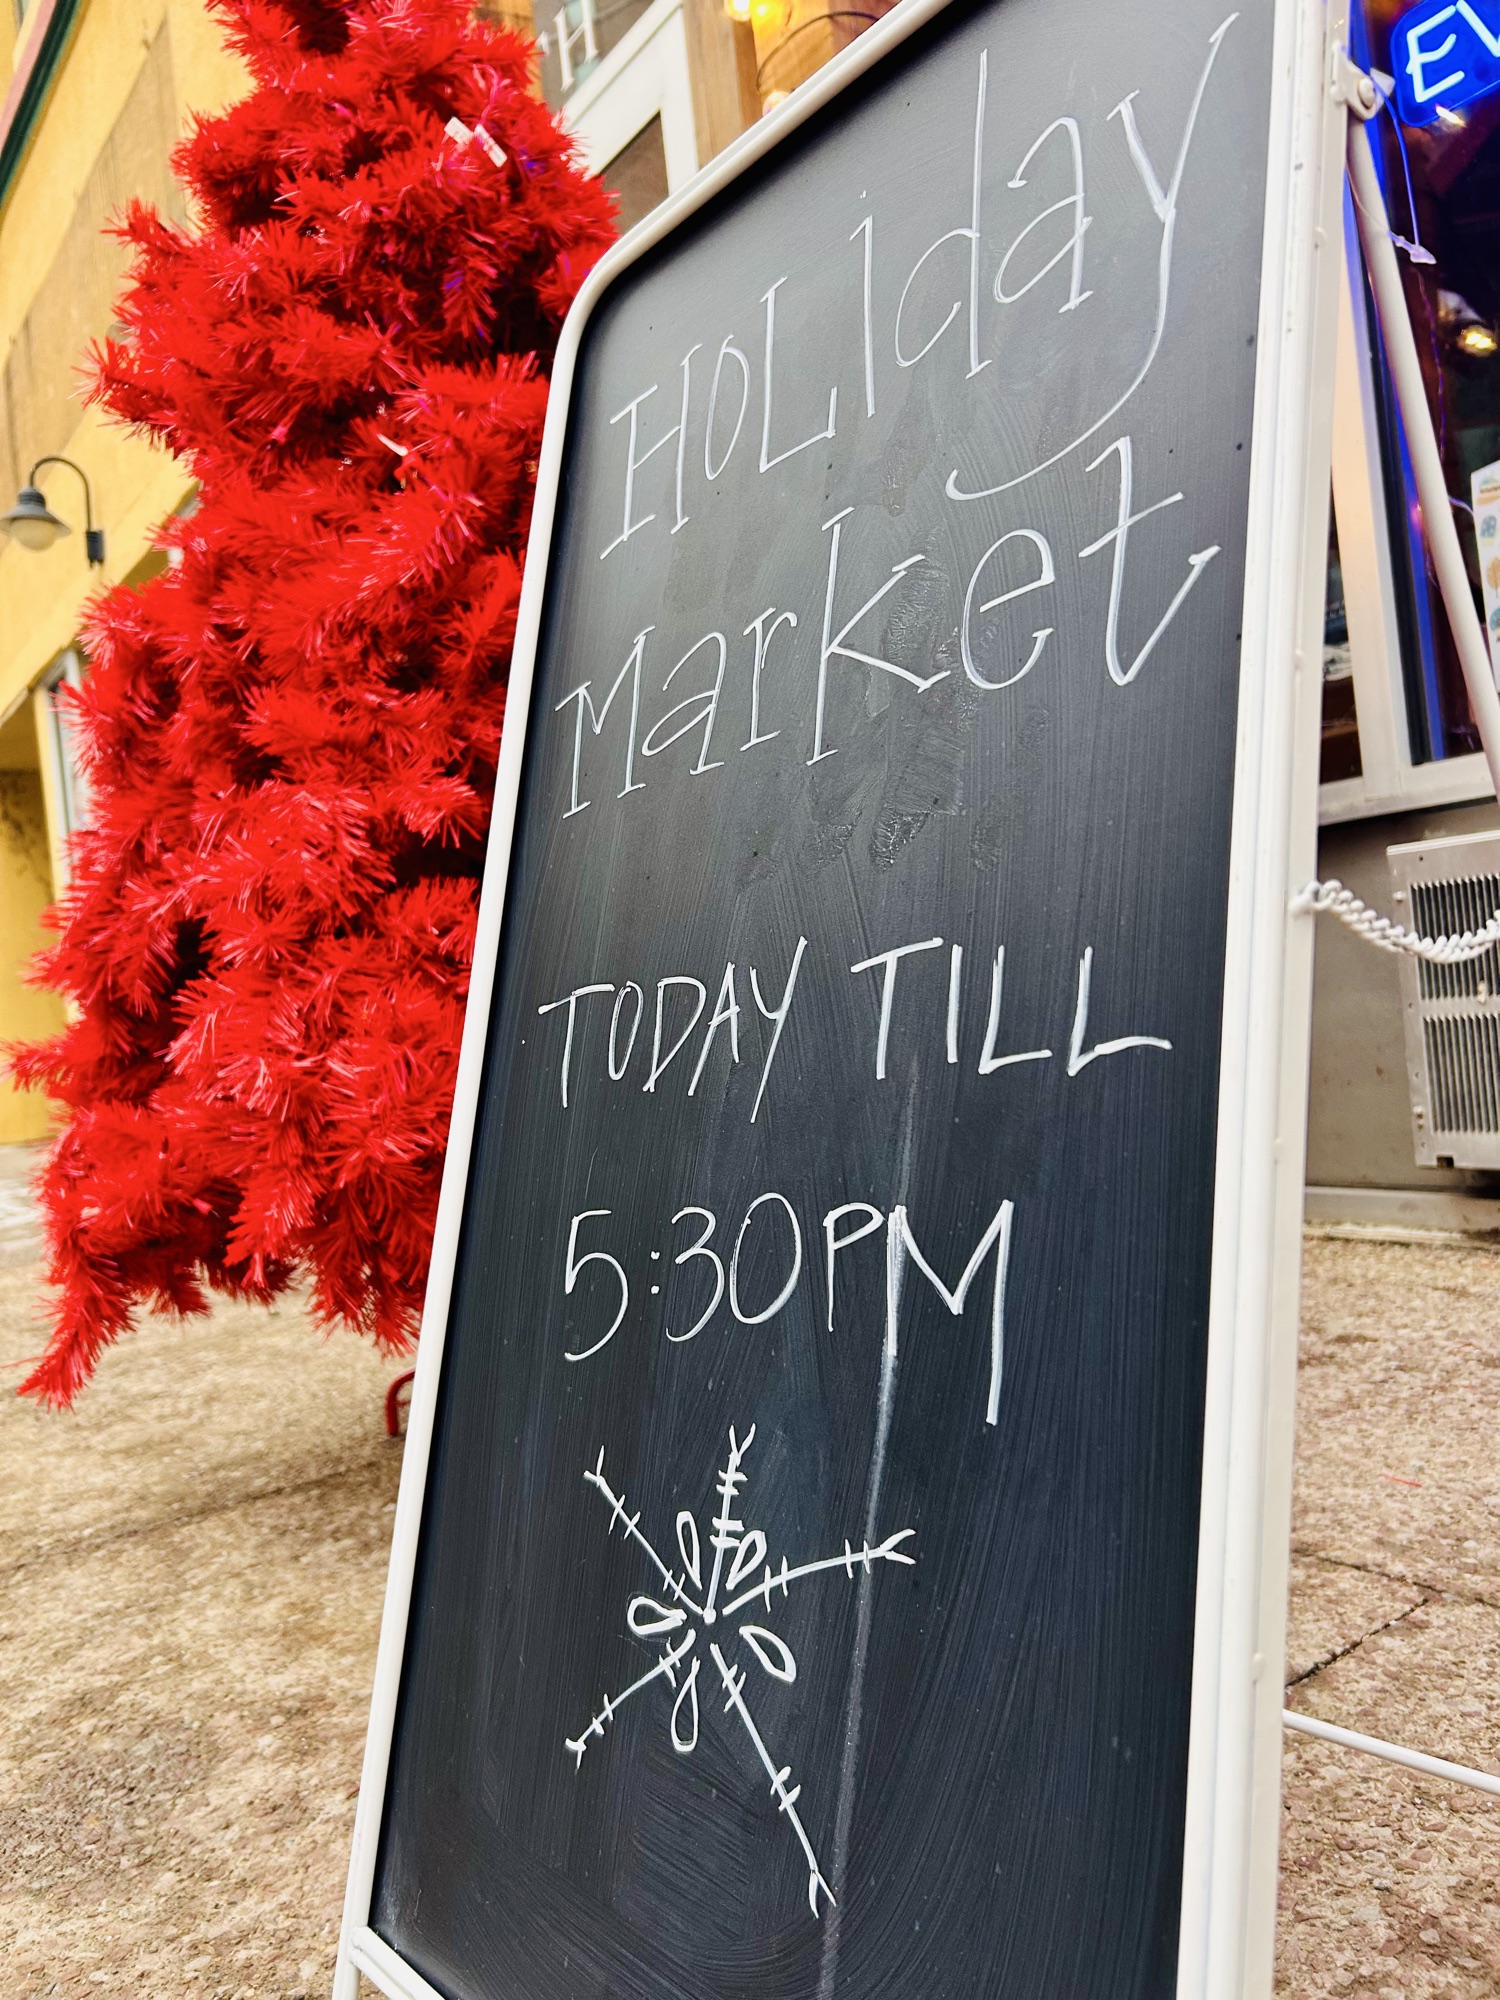 HOLiday
Market
TODAY TILL
5:30PM